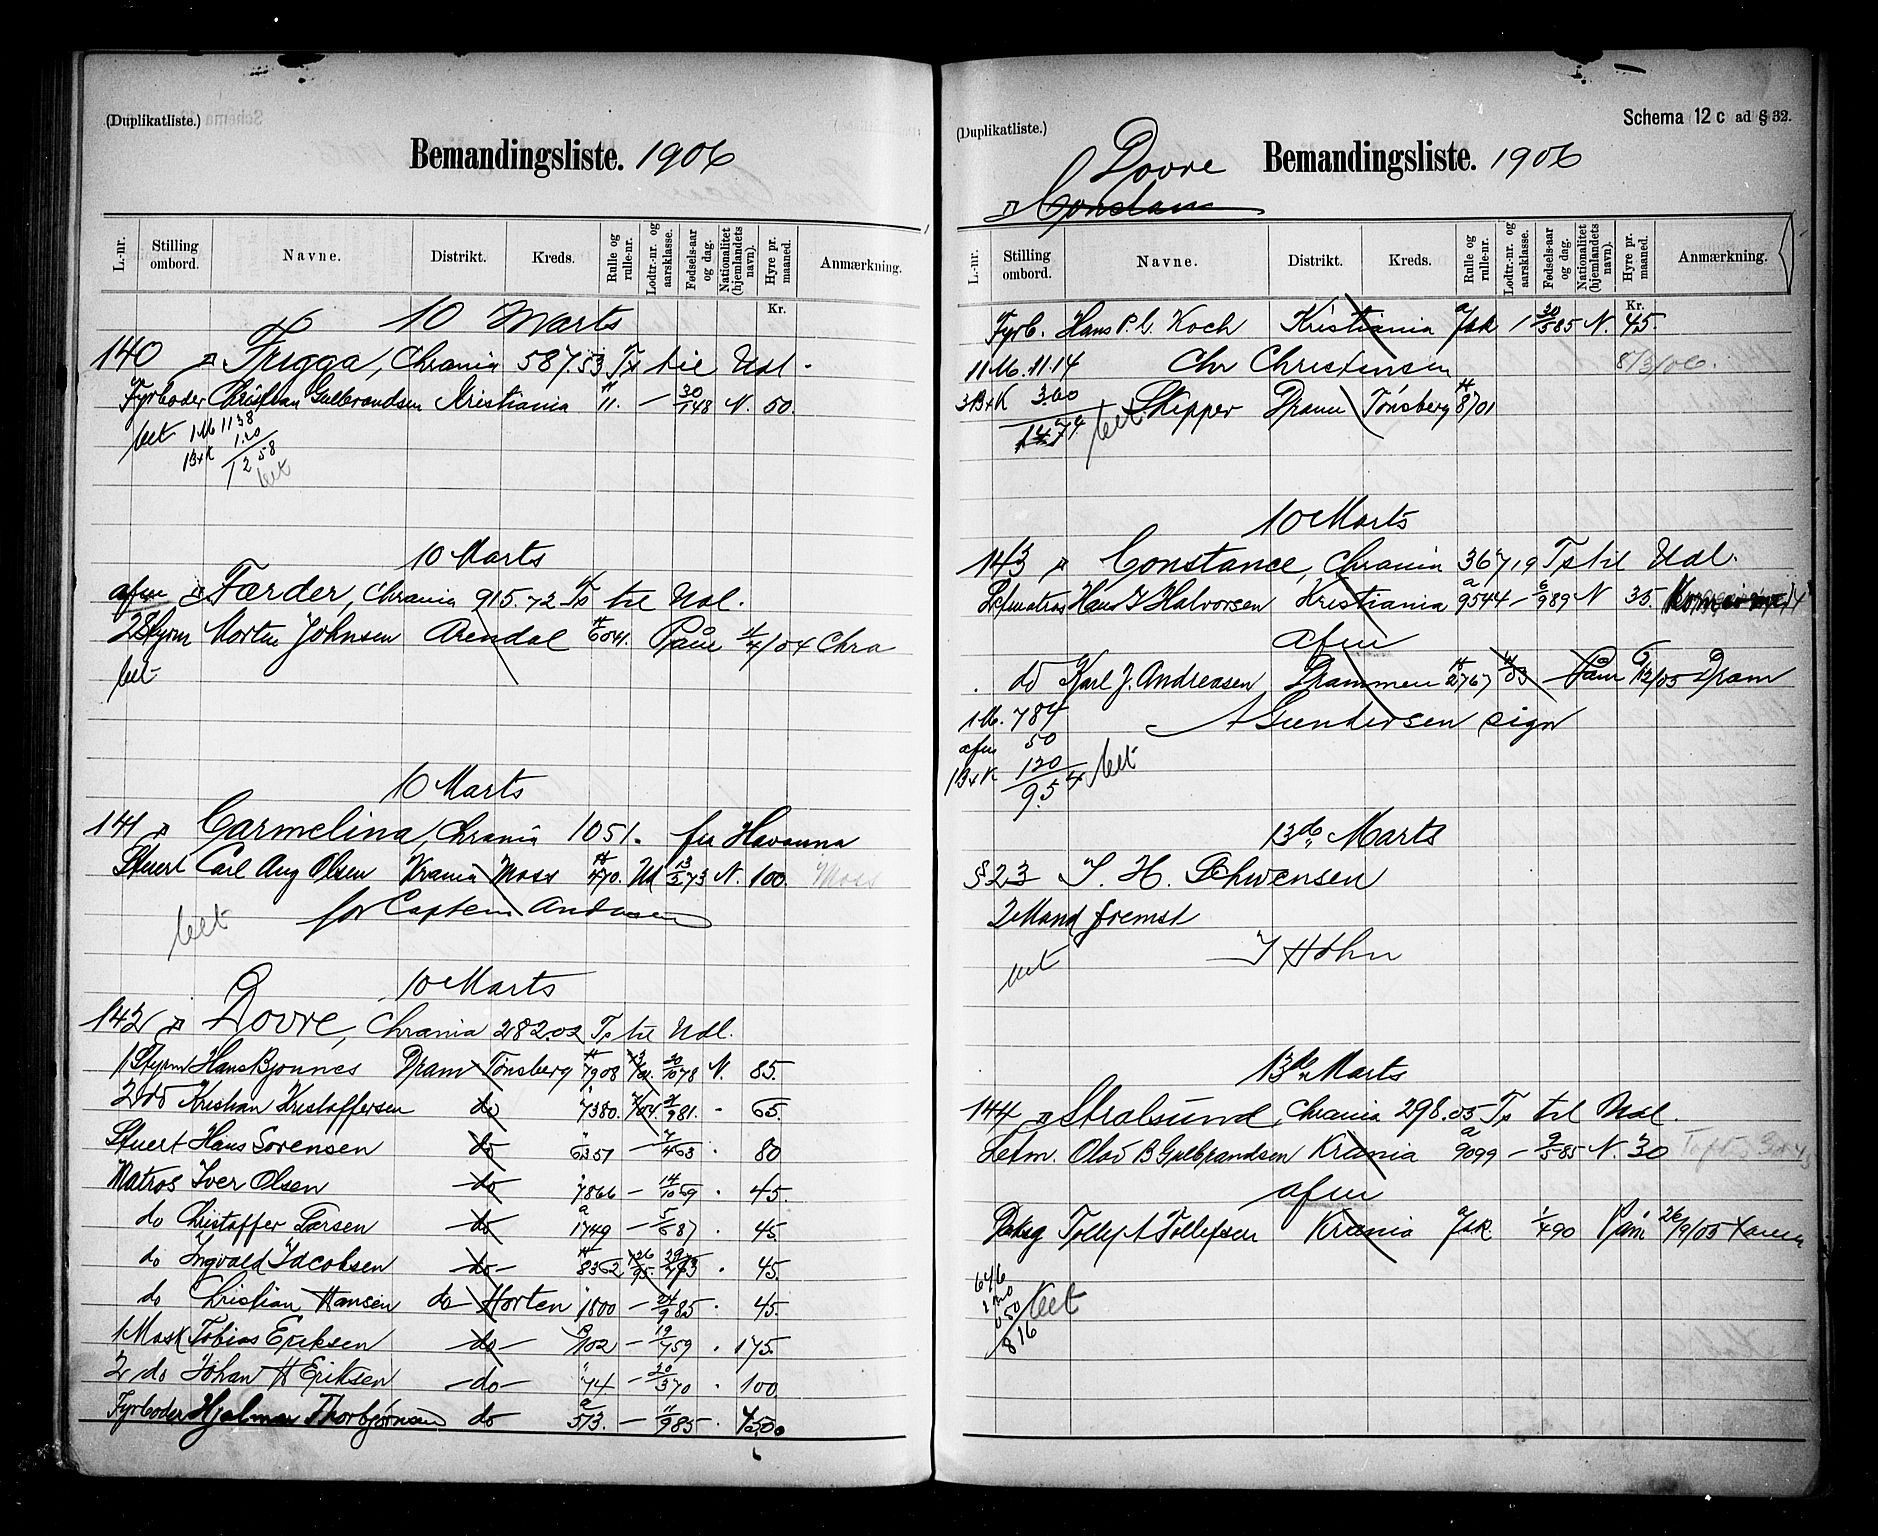 (Duplikatliste.)
Bemandingsliste. 1906
L.-nr. Stilling ombord. Navne. Distrikt. Kreds. Rulle og rulle-nr. Lodtr.-nr. og aarsklasse. Fødsels-aar og dag. Nationalitet (hjemlandets navn). Hyre pr. maaned. Anmærkning.
Kr.
10 Marts
140 Frigga, Chrania 587,53 Ts til Udl.
Fyrbøder Christian Gulbrandsen Kristiania H 11. — 30/1 48 N. 50.
bet 1 M 1138
1 B+K 1.20
12 58
bet
10 Marts
afm Færder, Chrania 915.72 Ts til Udl.
2 Styrm Morten Johnsen Arendal H 6041. Paam 11/4/04 Chra
bet
10 Marts
141 Carmelina, Chrania 1051. fra Havanna
Stuert Carl Aug Olsen Krania Moss H 470. Ud 13/5 73 N. 100. Moss
for Captein Andersen
bet
10 Marts
142 Dovre, Chrania 282.02 Ts til Udl.
1 Styrm Hans Bjønnes Dram Tønsberg H 7908 20/10 78 N. 85.
2 do Kristian Kristoffersen do " 7380. 981. - 65.
Stuert Hans Sørensen do " 6357 — 7/4 63 . 80
Matros Iver Olsen do " 7866 — 14/10 69 . 45.
do Christoffer Larsen do a 1749 — 5/6 87 . 45.
do Ingvald Jacobsen do H 8362 126/95. 29/4 73 . 45.
do Christian Hansen do Horten " 1800 — 24/9 85. 45.
1 Mask Tobias Eriksen do 102 — 19/7 59 . 175.
2 do Johan H Eriksen do " 74 — 20/3 70 . 100.
Fyrbøder Hjalmar Thorbjørnsen do a 573. — 11/9 85 .
(Duplikatliste.)
Schema 12 c ad § 32.
Dovre
Constan
Bemandingsliste. 1906
L.-nr. Stilling ombord. Navne. Distrikt. Kreds. Rulle og rulle-nr. Lodtr.-nr. og aarsklasse. Fødsels-aar og dag. Nationalitet (hjemlandets navn). Hyre pr. maaned. Anmærkning.
Kr.
Fyrb. Hans P. C. Koch Kristiania 30/5 85 N. 45.
11 M. 11.14 Chr Christensen 8/3/06.
3 B+K 3.60 Skipper Dram Tønsberg H 8701
14.74 bet
10 Marts
143 Constance, Chrania 367,19 Ts til Udl.
Letmatros Hans J Halvorsen Kristiania a 9544 — 6/9 89 N 35.
afm
do Karl J. Andreasen Drammen H 2767 Paam 12/05 Dram
1 M. 784 A Gundersen sign
afm 50
1 B+K 120
9.54 bet
13de Marts
§ 23 J. H. Schwensen
2 Mand fremst
J Høhn
bet
13de Marts
144 Stralsund, Chrania 298.05 Ts til Udl.
Letm. Olav B Gulbrandsen Krania a 9099 — 9/5 85 N. 30
afm
Dæksg Tollef A Tollefsen Krania 1/4 90 Paam 26/9/05 Xania
646
1 20
0 50 bet
816